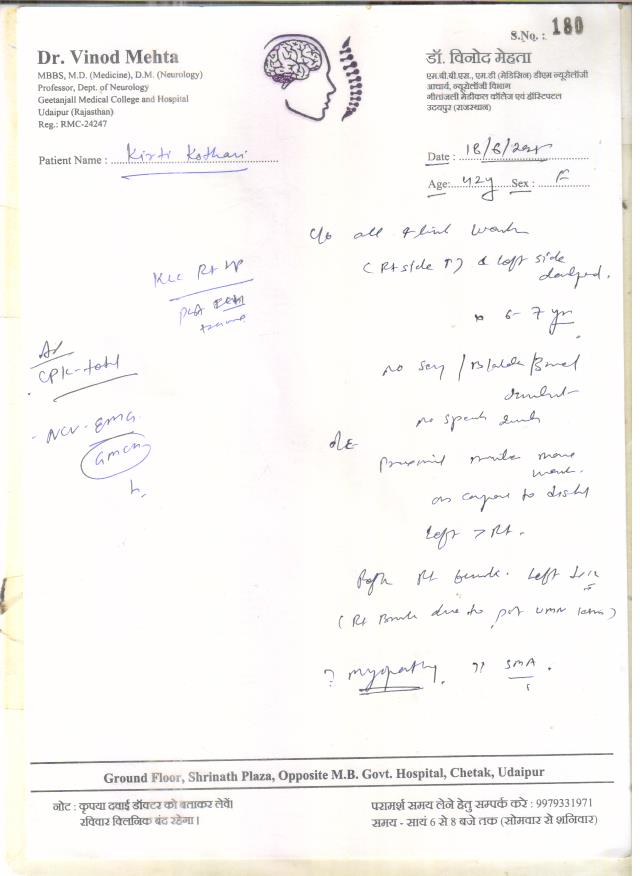 S.No. : 180
Dr. Vinod Mehta
MBBS, M.D. (Medicine), D.M. (Neurology)
Professor, Dept. of Neurology
Geetanjali Medical College and Hospital
Udaipur (Rajasthan)
Reg.: RMC-24247
डॉ. विनोद मेहता
एम.बी.बी.एस., एम.डी (मेडिसिन) डीएम न्यूरोलॉजी
आचार्य, न्यूरोलॉजी विभाग
गीतांजली मेडीकल कॉलेज एवं हॉस्पिटल
उदयपुर (राजस्थान)
Patient Name : Kirti Kothari
Date : 18/8/2025
Age: 42y Sex : F
c/o all 4 limb weak
(Rt side ↑) & left side
6-7 yr
no / Bladder / Bowel
no speech
O/E
Proximal muscle more
weak
as compare to distal
left > Rt.
Rt left
(Rt due to past UMN)
? myopathy ?? SMA.
K/c/c Rt
Adv
CPK-total
- NCV-EMG
GMCH
Ground Floor, Shrinath Plaza, Opposite M.B. Govt. Hospital, Chetak, Udaipur
नोट : कृपया दवाई डॉक्टर को बताकर लेवें।
रविवार क्लिनिक बंद रहेगा।
परामर्श समय लेने हेतु सम्पर्क करे : 9979331971
समय - सायं 6 से 8 बजे तक (सोमवार से शनिवार)